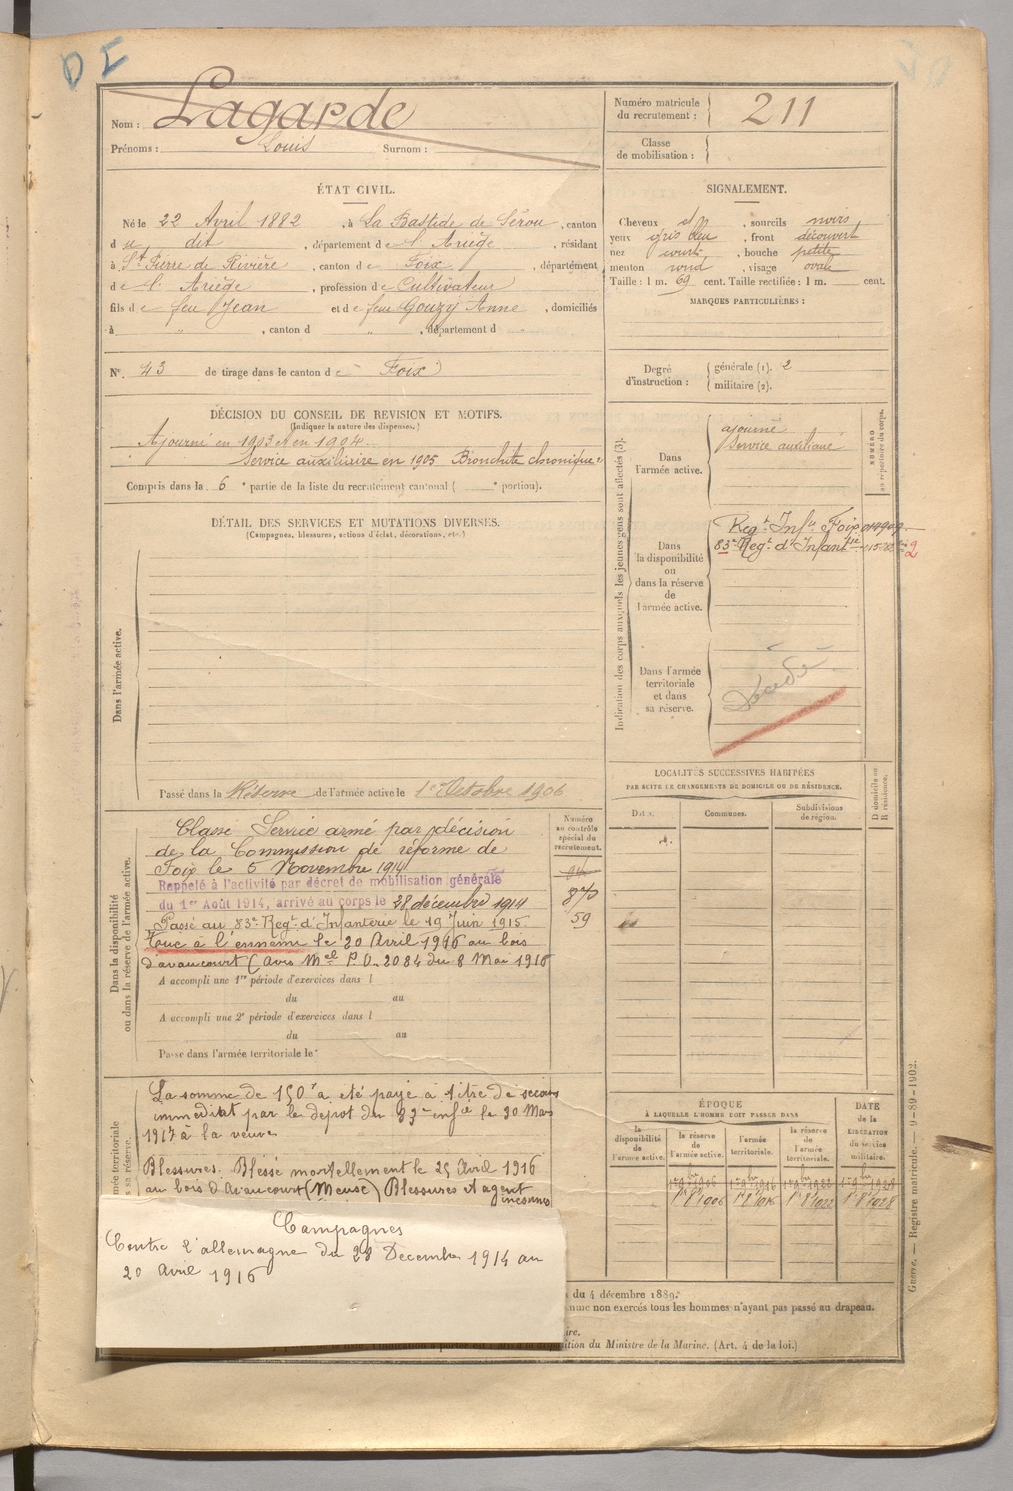 Nom : Lagarde
Prénoms : Louis Surnom :
Numéro matricule
du recrutement : 211
Classe
de mobilisation :
ÉTAT CIVIL.
Né le 22 Avril 1882, à La Bastide de Sérou, canton
du dit, département de l'Ariège, résidant
à St Pierre de Rivière, canton de Foix, département
de l'Ariège, profession de Cultivateur
fils de feu Jean et de feue Gouzy Anne, domiciliés
à " , canton d " , département d "
SIGNALEMENT.
Cheveux et , sourcils noirs
yeux gris bleu, front découvert
nez court, bouche petite
menton rond, visage ovale
Taille : 1 m. 69 cent. Taille rectifiée : 1 m. cent.
MARQUES PARTICULIÈRES :
N°. 43 de tirage dans le canton de Foix
Degré
d'instruction :
générale (1). 2
militaire (2).
DÉCISION DU CONSEIL DE REVISION ET MOTIFS.
(Indiquer la nature des dispenses.)
Ajourné en 1903 et en 1904.
Service auxiliaire en 1905 Bronchite chronique
Compris dans la 6e partie de la liste du recrutement cantonal ( e portion).
DÉTAIL DES SERVICES ET MUTATIONS DIVERSES.
(Campagnes, blessures, actions d'éclat, décorations, etc.)
Dans l'armée active.
Passé dans la Réserve de l'armée active le 1er Octobre 1906
Indication des corps auxquels les jeunes gens sont affectés (3).
NUMÉRO
au répertoire du corps.
Dans
l'armée active.
ajourné
Service auxiliaire
Dans
la disponibilité
ou
dans la réserve
de
l'armée active.
Regt Infie Foix
83e Regt d'Infantie 2
Dans l'armée
territoriale
et dans
sa réserve.
Décédé
LOCALITÉS SUCCESSIVES HABITÉES
PAR SUITE DE CHANGEMENTS DE DOMICILE OU DE RÉSIDENCE.
Dates.
Communes.
Subdivisions
de région.
D domicile ou
R résidence.
Dans la disponibilité
ou dans la réserve de l'armée active.
Numéro
au contrôle
spécial du
recrutement.
Classé Service armé par décision
de la Commission de réforme de
Foix le 5 Novembre 1914
Rappelé à l'activité par décret de mobilisation générale
du 1er Août 1914, arrivé au corps le 28 décembre 1914
870
Passé au 83e Regt d'Infanterie le 19 Juin 1915.
59
Tué à l'ennemi le 20 Avril 1916 au bois
d'avaucourt (avis Mel P.O. 2084 du 8 Mai 1916
A accompli une 1re période d'exercices dans l
du au
A accompli une 2e période d'exercices dans l
du au
Passé dans l'armée territoriale le
La somme de 150f a été payé à titre de secours
immédiat par le dépôt du 83e infie le 20 Mars
1917 à la veuve
Blessures. Blessé mortellement le 25 Avril 1916
au bois d'Avaucourt (Meuse) Blessures et agent
inconnus
ÉPOQUE
À LAQUELLE L'HOMME DOIT PASSER DANS
DATE
de la
LIBÉRATION
du service
militaire.
la
disponibilité
de
l'armée active.
la réserve
de
l'armée active.
l'armée
territoriale.
la réserve
de
l'armée
territoriale.
1er 8 1906 1er 8 1916 1er 8 1922 1er 8 1928
Campagnes
Contre l'allemagne du 28 Decembre 1914 au
20 Avril 1916
du 4 décembre 1889.
non exercés tous les hommes n'ayant pas passé au drapeau.
ition du Ministre de la Marine. (Art. 4 de la loi.)
Guerre. — Registre matricule. — 9-89-1902.